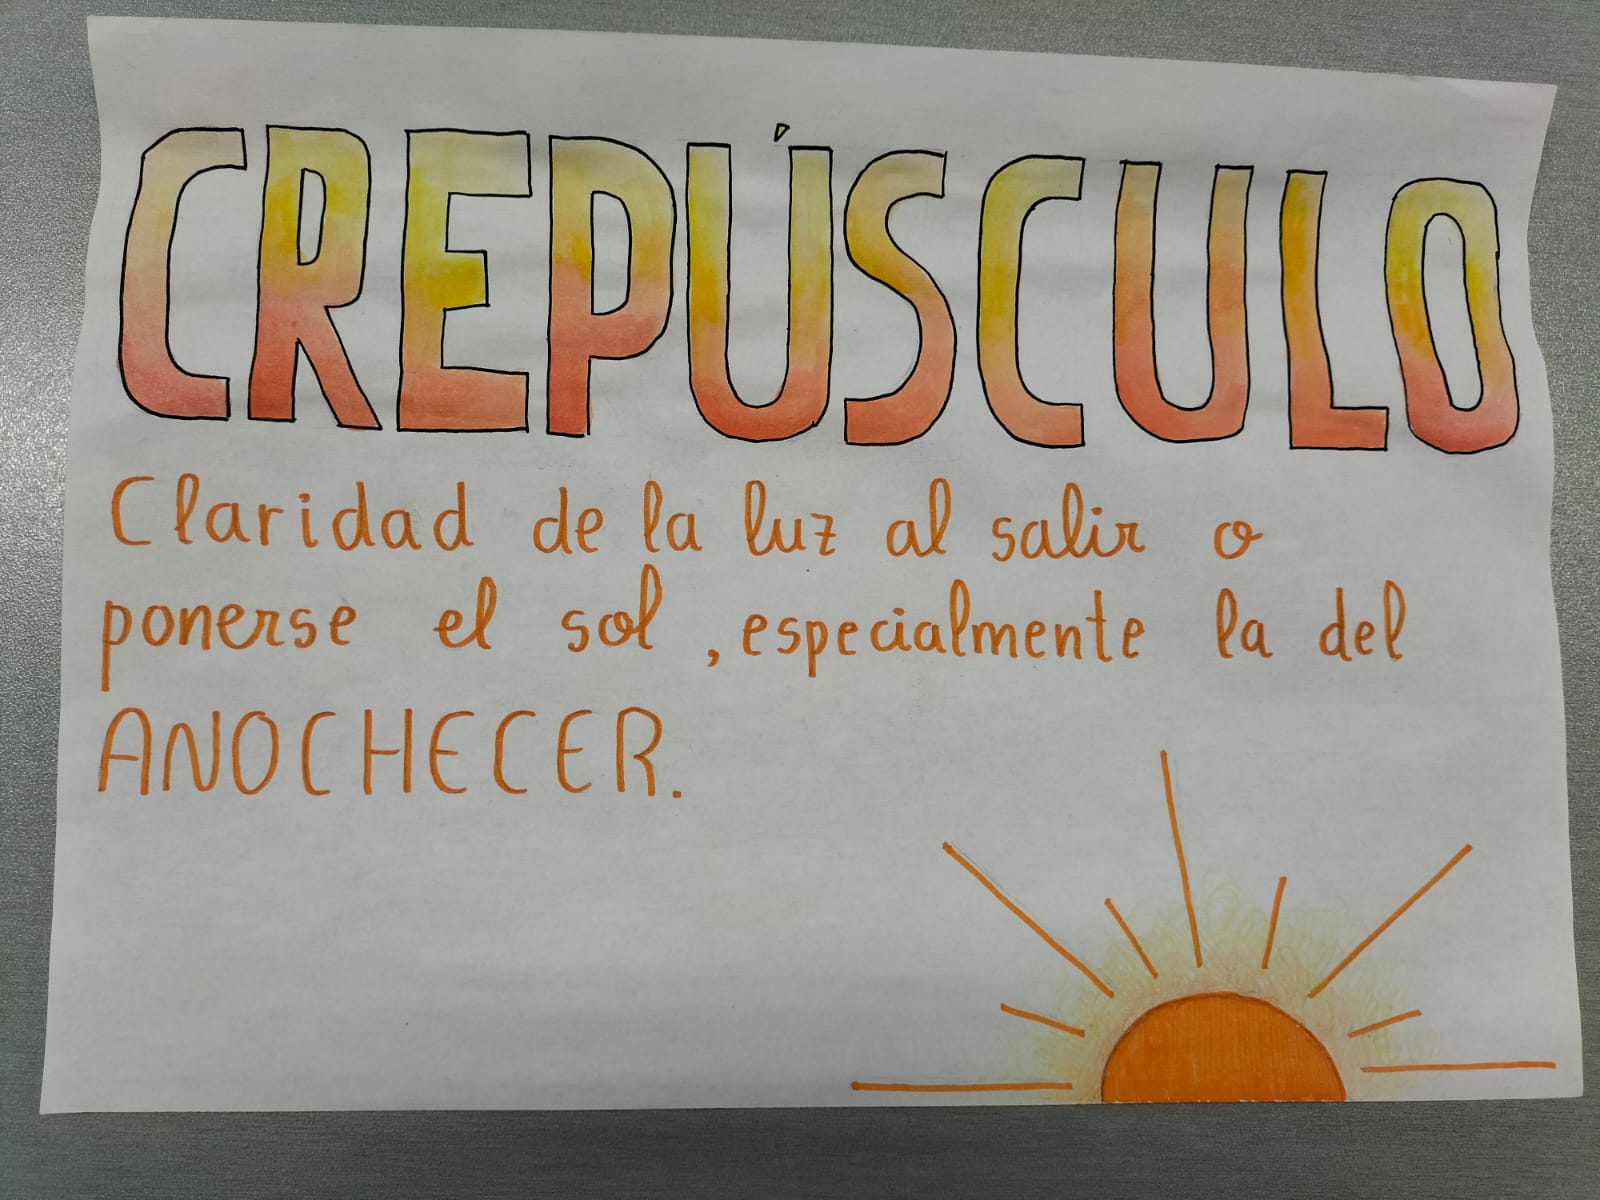 CREPÚSCULO
Claridad de la luz al salir o
ponerse el sol, especialmente la del
ANOCHECER.